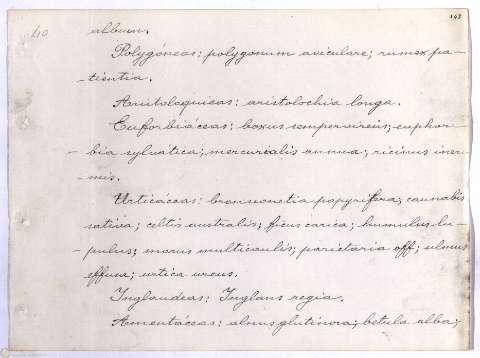 143
40
album.
Polygóneas: polygonum aviculare; rumex pa-
tientia.
Aristoloquieas: aristolochia longa.
Euforbiáceas: boxus sempervireis; euphor-
bia sylvática; mercurialis annua; ricinus iner-
mis.
Urticáceas: brousonetia papyrifera; cannabis
sativa; celtis australis; ficus carica; humulus lu-
pulus; morus multicaulis; parietaria off; ulmus
effusa; urtica ureus.
Inglandeas: Inglans regia.
Amentáceas: alnus glutinosa; betula alba;